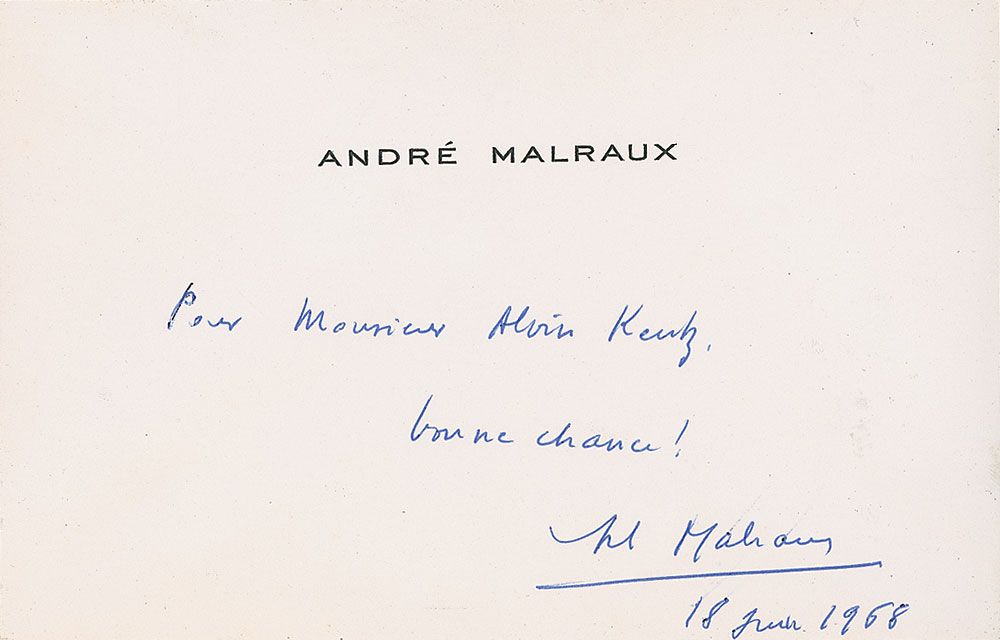 ANDRÉ MALRAUX
Pour Monsieur Alvin
bonne chance!
Malraux
18 juin 1968